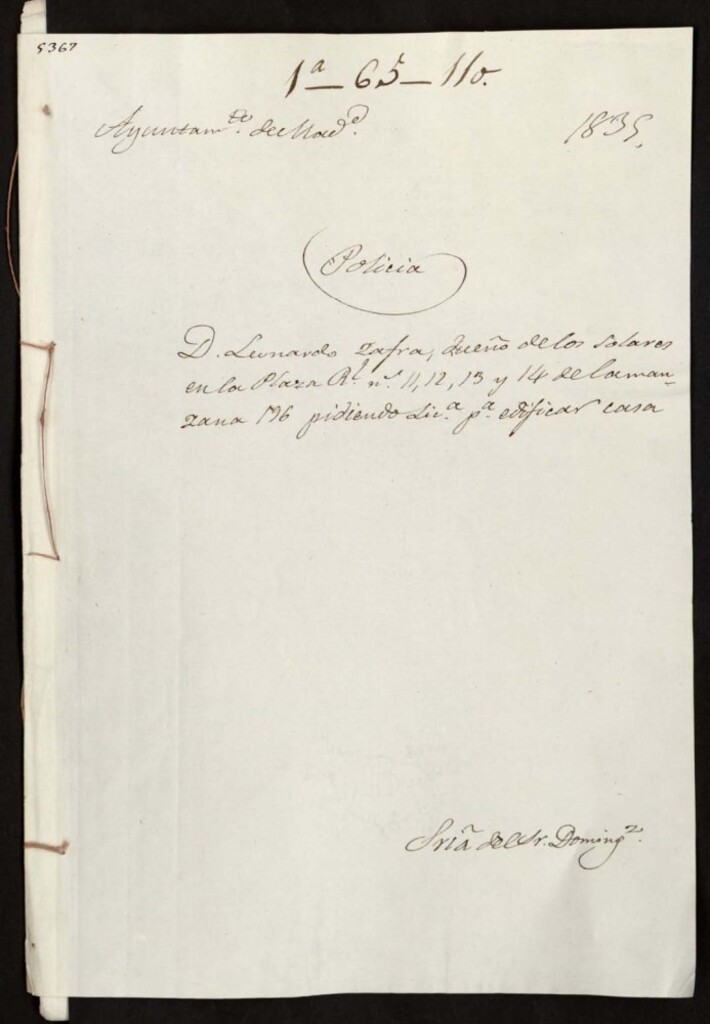 5367
1ª_65_110.
Ayuntam.to de Mad.d
1835,
Policia
D. Leonardo Zafra, dueño de los solares
en la Plaza Rl. n.s 11, 12, 13 y 14 de la man-
zana 196 pidiendo Lic.a p.a edificar casa
Sria del Sr. Doming.z